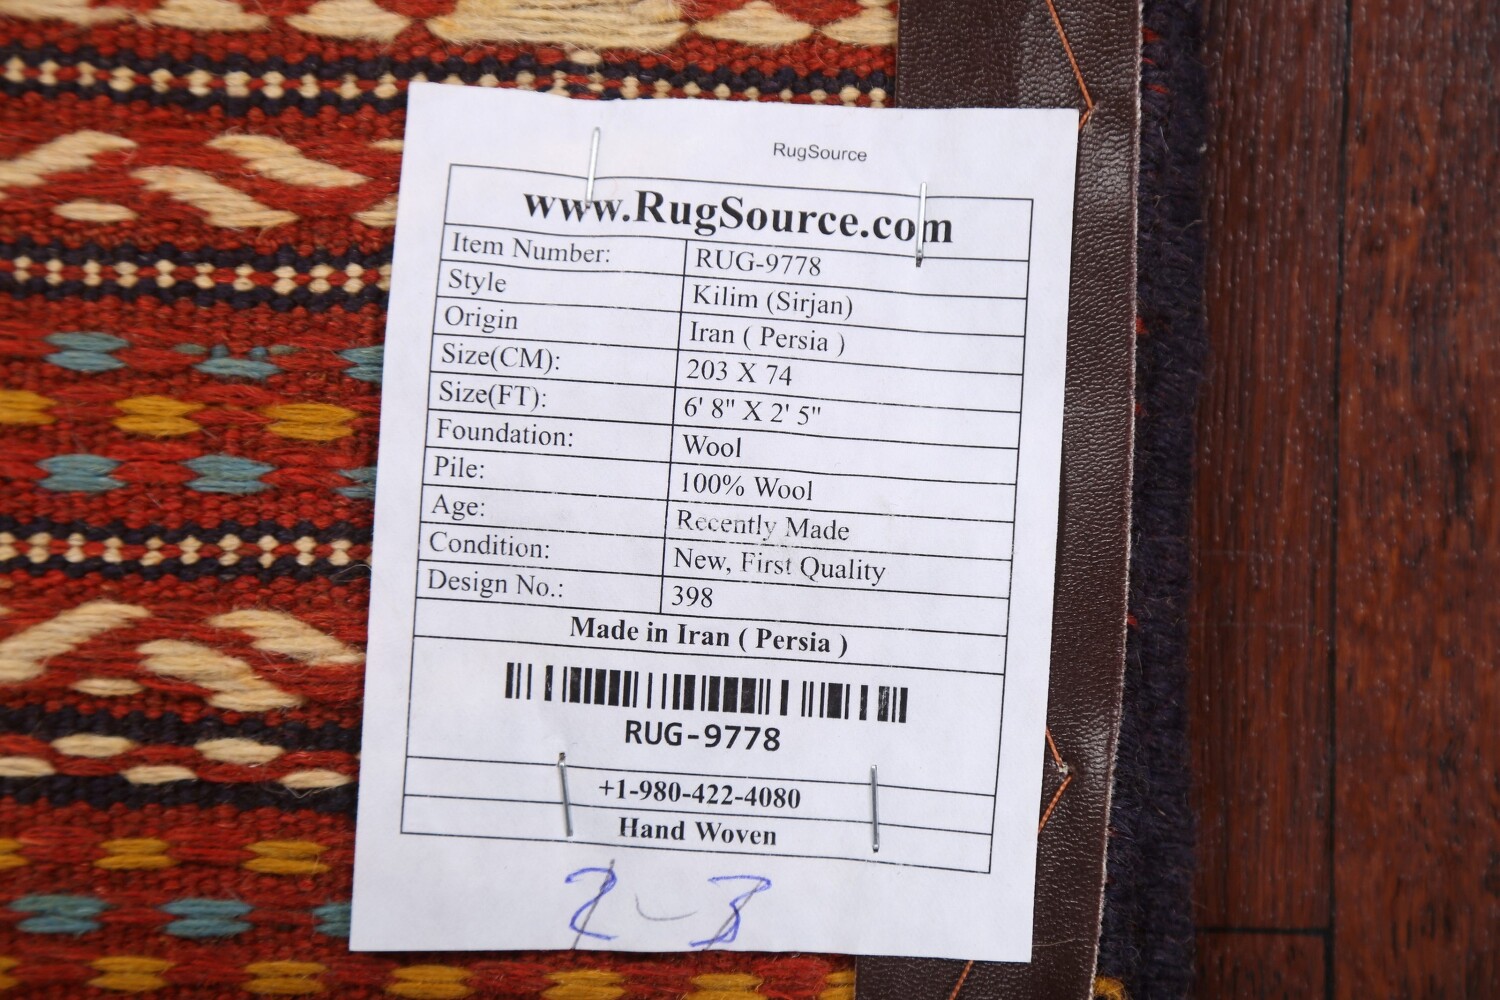 RugSource
www.RugSource.com
Item Number: RUG-9778
Style Kilim (Sirjan)
Origin Iran ( Persia )
Size(CM): 203 X 74
Size(FT): 6' 8" X 2' 5"
Foundation: Wool
Pile: 100% Wool
Age: Recently Made
Condition: New, First Quality
Design No.: 398
Made in Iran ( Persia )
RUG-9778
+1-980-422-4080
Hand Woven
2-3